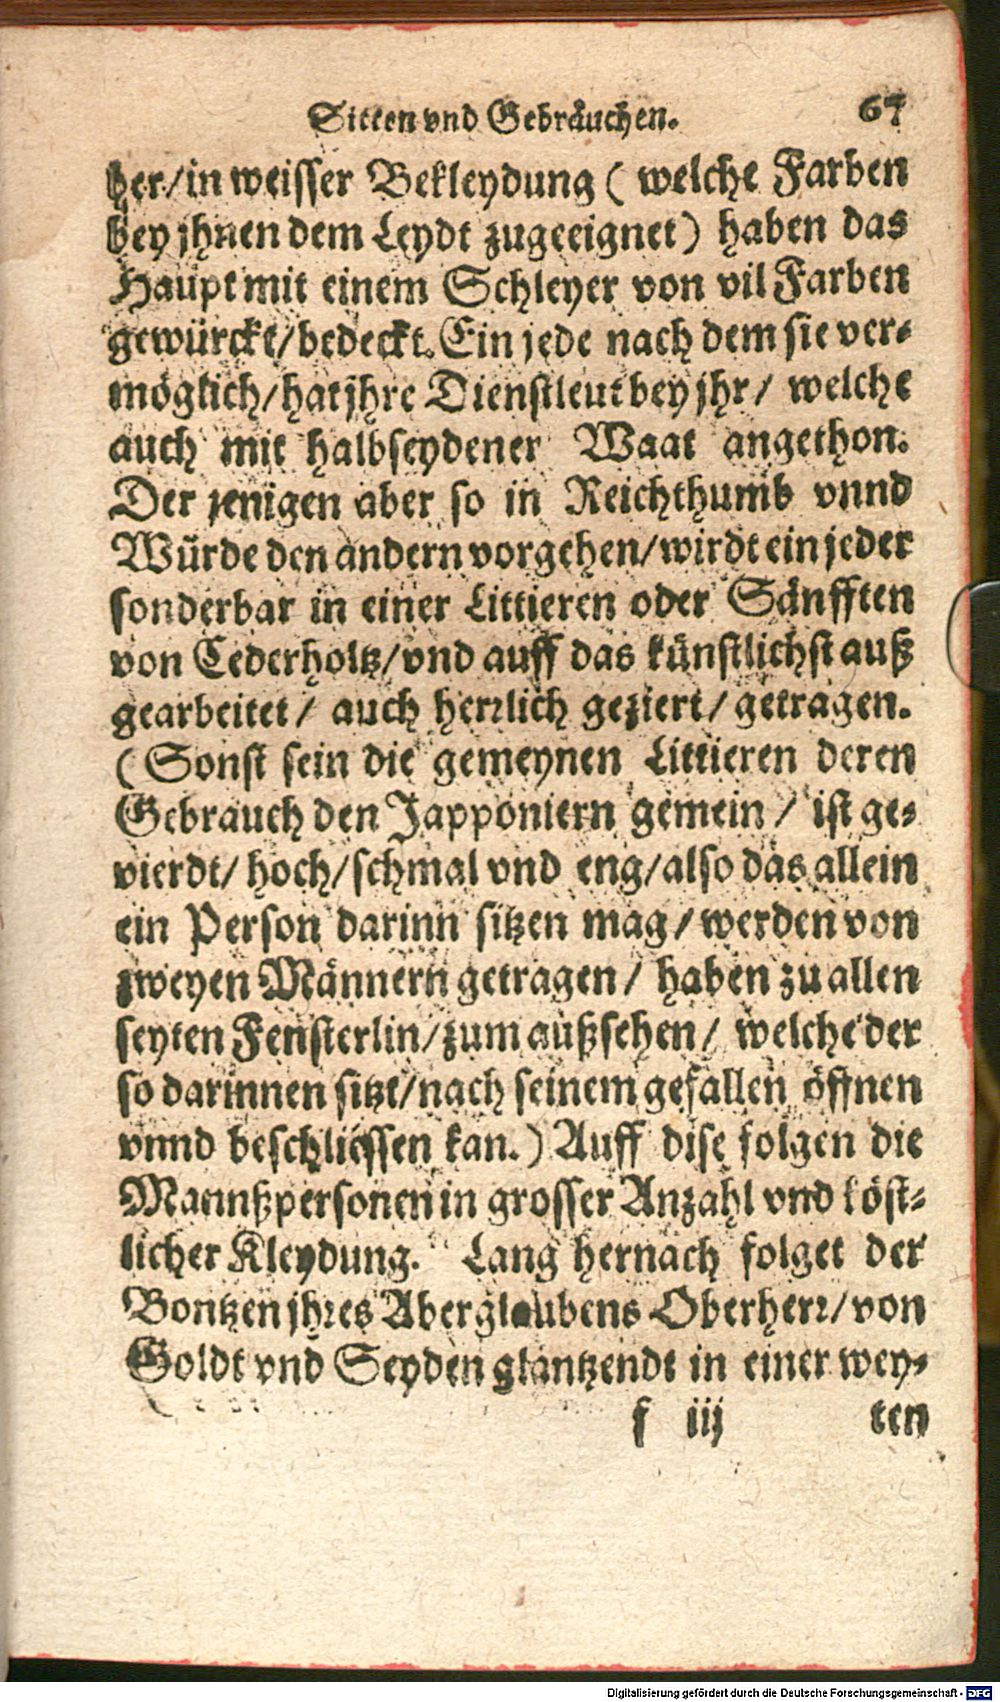 Sitten vnd Gebräuchen. 67
her/in weisser Bekleydung ( welche Farben
bey jhnen dem Leydt zugeeignet) haben das
Haupt mit einem Schleyer von vil Farben
gewürckt/bedeckt. Ein jede nach dem sie ver-
möglich/hat jhre Dienstleut bey jhr/ welche
auch mit halbseydener Waat angethon.
Der jenigen aber so in Reichthumb vnnd
Würde den andern vorgehen/wirdt ein jeder
sonderbar in einer Littieren oder Sänfften
von Cederholtz/vnd auff das künstlichst auß
gearbeitet/ auch herrlich geziert/ getragen.
( Sonst sein die gemeynen Littieren deren
Gebrauch den Japponiern gemein / ist ge-
vierdt/ hoch/schmal vnd eng/also das allein
ein Person darinn sitzen mag/werden von
zweyen Männern getragen/ haben zu allen
seyten Fensterlin/zum außsehen/ welche der
so darinnen sitzt/nach seinem gefallen öffnen
vnnd beschliessen kan.) Auff dise folgen die
Mannßpersonen in grosser Anzahl vnd köst-
licher Kleydung. Lang hernach folget der
Bontzen jhres Aberglaubens Oberherr/von
Goldt vnd Seyden glantzendt in einer wey-
f iij ten
Digitalisierung gefördert durch die Deutsche Forschungsgemeinschaft - DFG